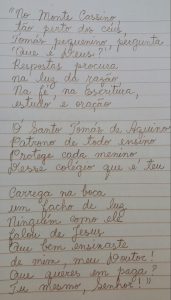 "No Monte Cassino,
tão perto dos céus,
Tomás pequenino, pergunta
"Que é Deus?"
Respostas procura
na luz da razão
Na fé, na Escritura,
estudo e oração
Ó Santo Tomás de Aquino
Patrono de todo ensino
Protege cada menino
Desse colégio que é teu
Carrega na boca
um facho de luz
Ninguém como ele
falou de Jesus
Que bem ensinaste
de mim, meu Doutor!
Que queres em paga?
Tu mesmo, Senhor!"